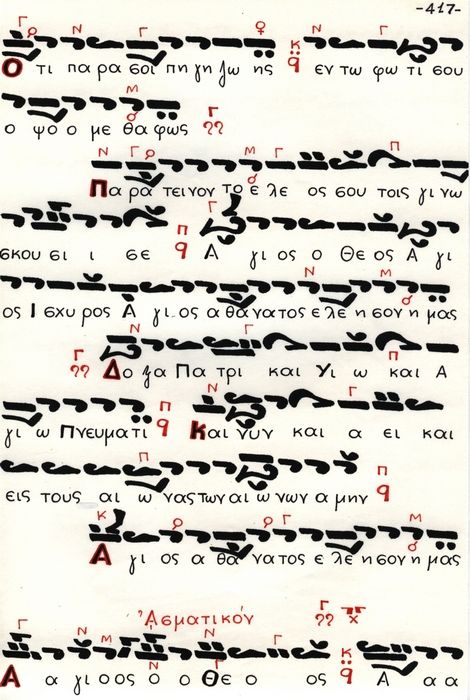 -417-
Ο τι πα ρα σοι πη γη ζω ης εν τω φω τι σου
ο ψο ο με θα φως
Πα ρα τει νον το ε λε ος σου τοις γι νω
σκου σι ι σε Α γι ος ο Θε ος Α γι
ος Ι σχυ ρος Α γι ος α θα να τος ε λε η σον η μας
Δο ξα Πα τρι και Υι ω και Α
γι ω Πνευ μα τι Και νυν και α ει και
εις τους αι ω νας των αι ω νων α μην
Α γι ος α θα να τος ε λε η σον η μας
Ἀσματικόν
Α α γι ο ος ο ο Θε ο ος Α α α